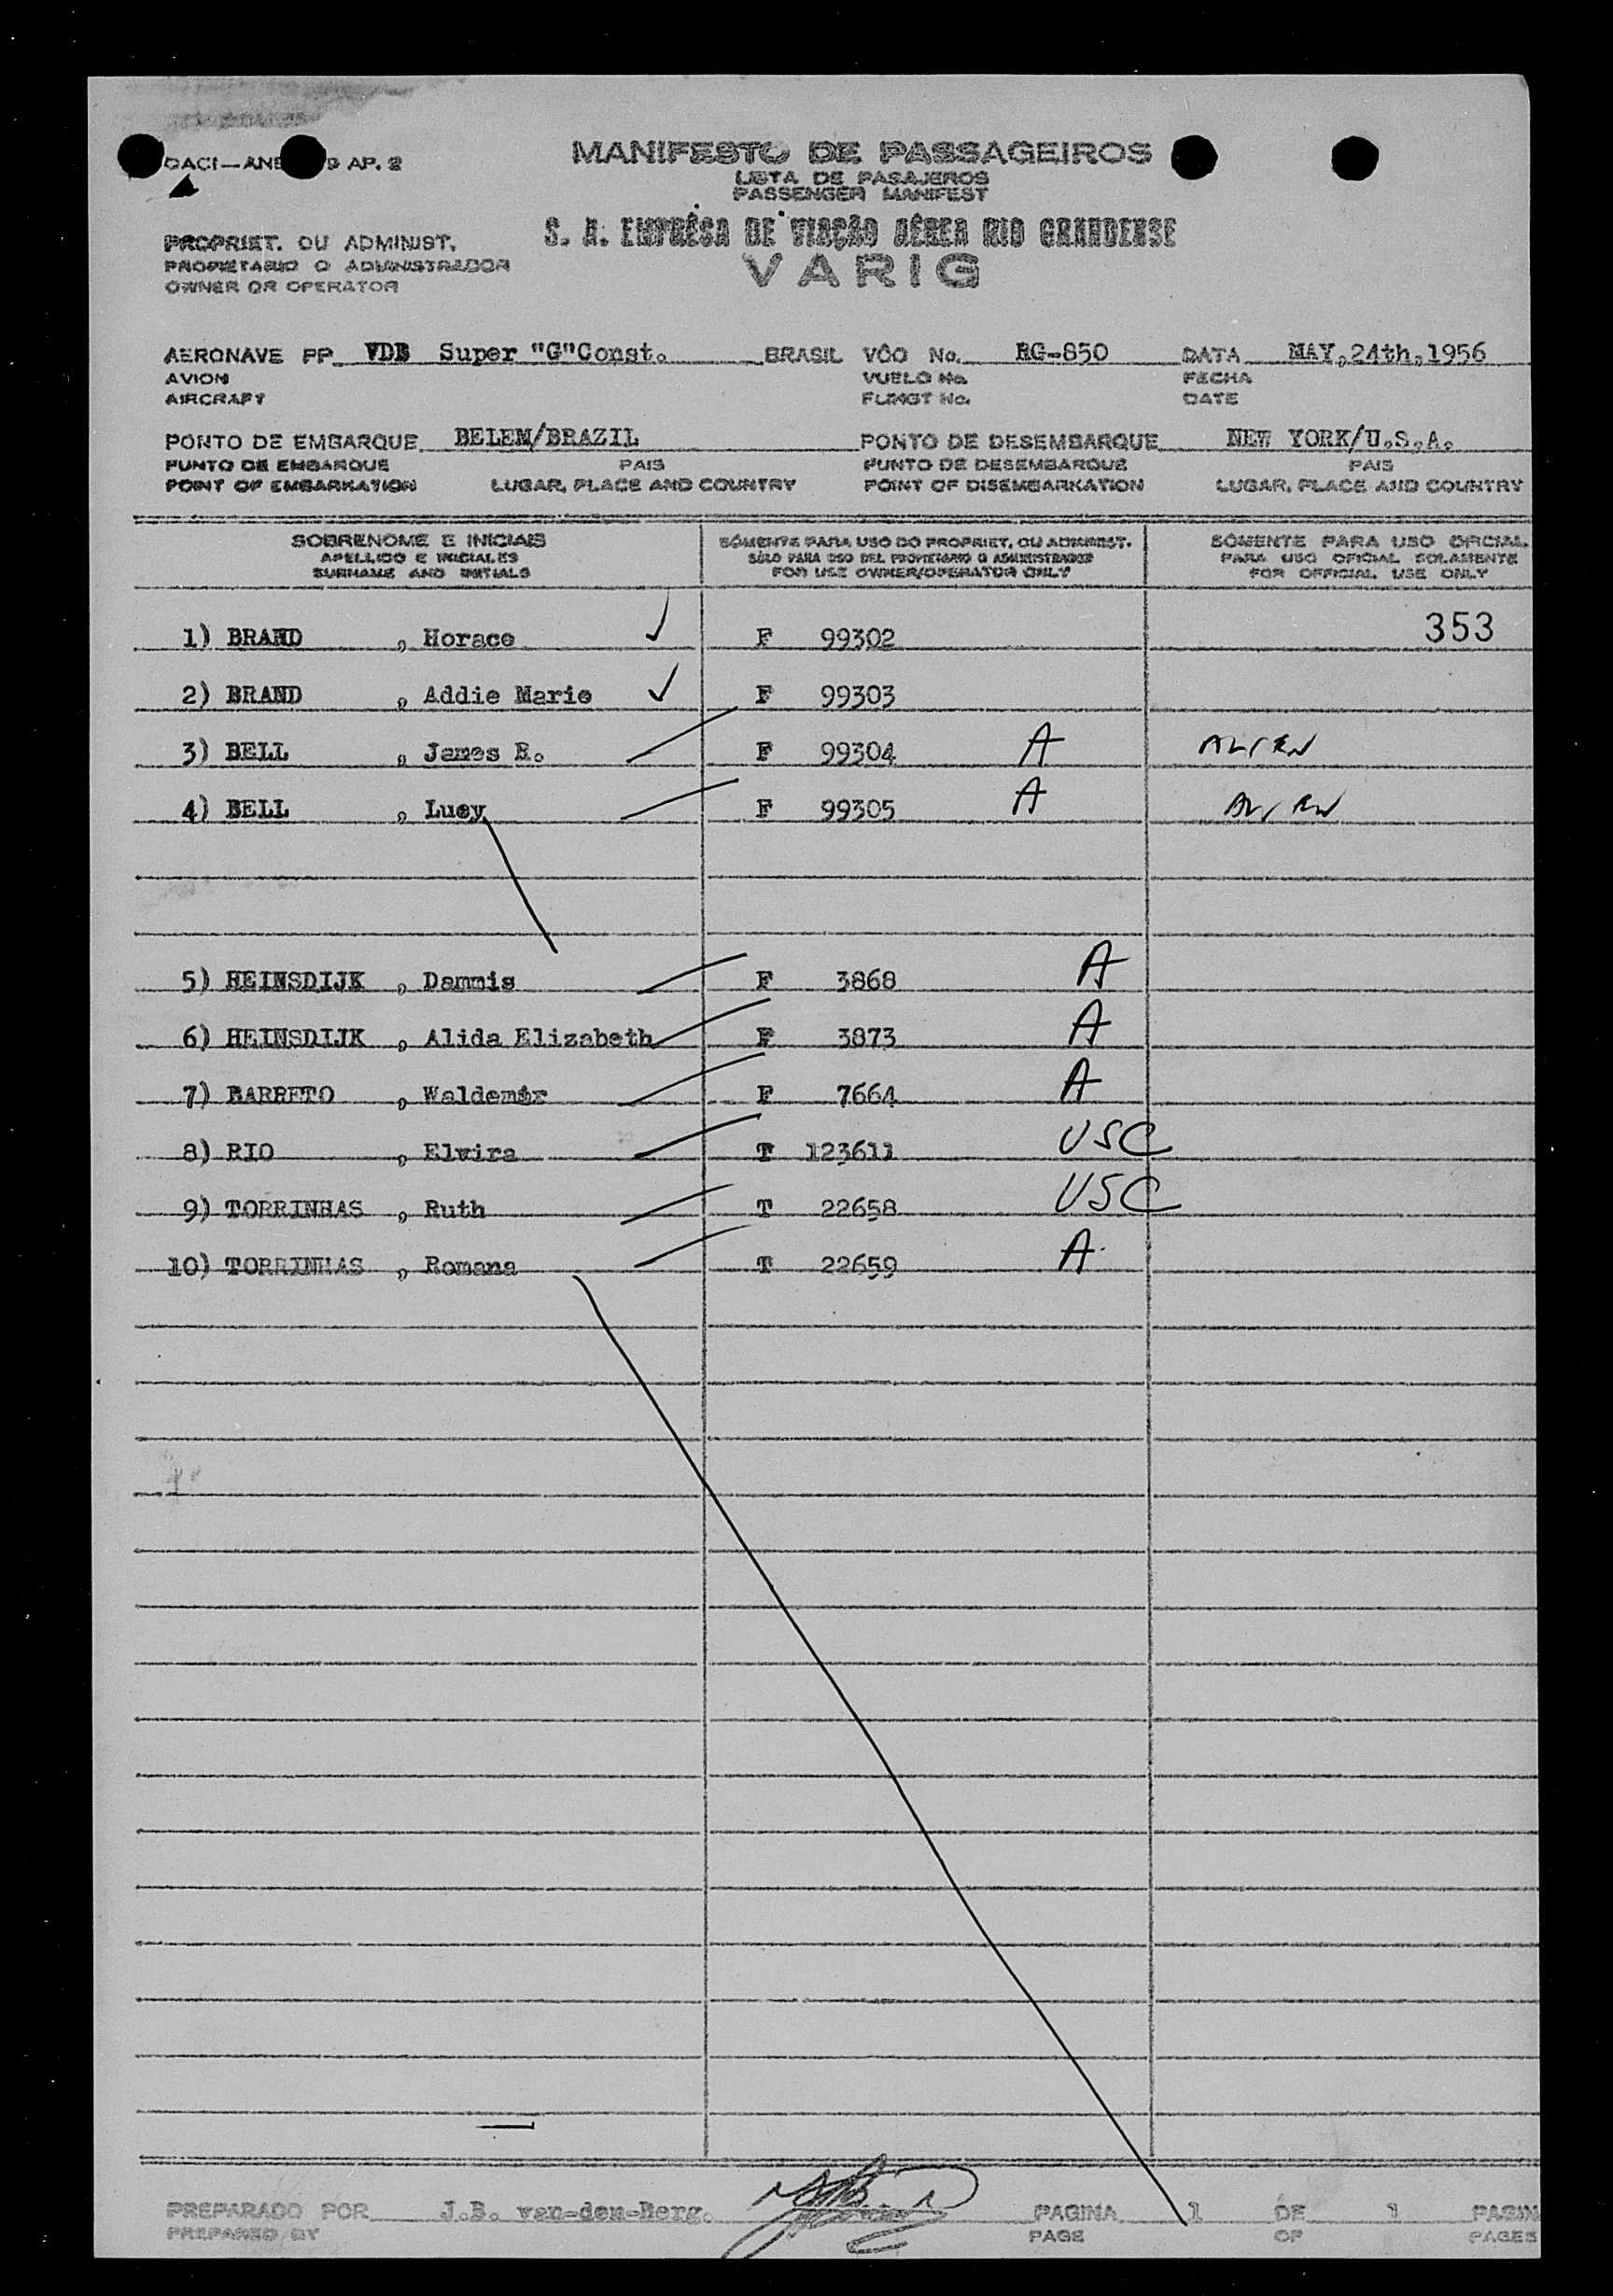 OACI — ANE 9 AP. 2
MANIFESTO DE PASSAGEIROS
LISTA DE PASAJEROS
PASSENGER MANIFEST
S. A. EMPRÊSA DE VIAÇÃO AÉREA RIO GRANDENSE
VARIG
PROPRIET. OU ADMINIST.
PROPIETARIO O ADMINISTRADOR
OWNER OR OPERATOR
AERONAVE PP VDB Super "G"Const. BRASIL VÔO No. RG-850 DATA MAY,24th,1956
AVION VUELO No. FECHA
AIRCRAFT FLIHGT No. DATE
PONTO DE EMBARQUE BELEM/BRAZIL PONTO DE DESEMBARQUE NEW YORK/U.S.A.
PUNTO DE EMBARQUE PAIS PUNTO DE DESEMBARQUE PAIS
POINT OF EMBARKATION LUGAR, PLACE AND COUNTRY POINT OF DISEMBARKATION LUGAR, PLACE AND COUNTRY
SOBRENOME E INICIAIS SÓMENTE PARA USO DO PROPRIET, OU ADMINIST. SÓMENTE PARA USO OFICIAL
APELLIDO E INICIALES SÓLO PARA USO DEL PROPIETARIO O ADMINISTRADOR PARA USO OFICIAL SOLAMENTE
SURNAME AND INITIALS FOR USE OWNER/OPERATOR ONLY FOR OFFICIAL USE ONLY
1) BRAND , Horace F 99302 353
2) BRAND , Addie Marie F 99303
3) BELL , James E. F 99304 A ALIEN
4) BELL , Lucy F 99305 A ALIEN
5) HEINSDIJK , Dammis F 3868 A
6) HEINSDIJK , Alida Elizabeth F 3873 A
7) BARRETO , Waldemar F 7664 A
8) RIO , Elvira T 123611 USC
9) TORRINHAS , Ruth T 22658 USC
10) TORRINHAS , Romana T 22659 A
PREPARADO POR J.B. van-den-Berg. PAGINA 1 DE 1 PAGIN
PREPARED BY PAGE OF PAGES